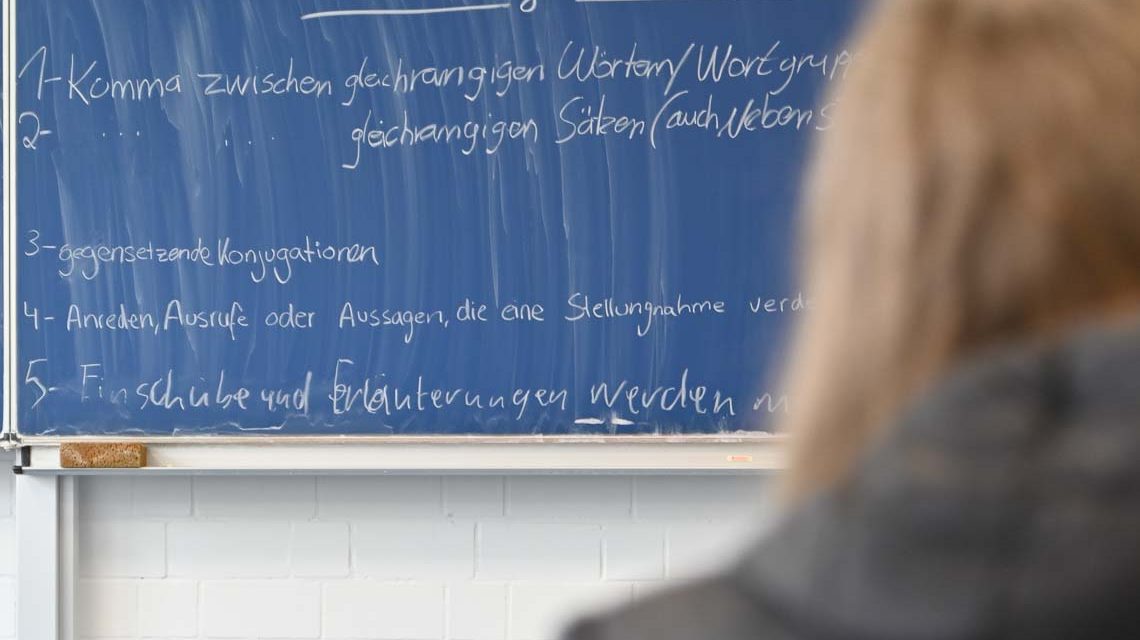 1- Komma zwischen gleichrangigen Wörtern/Wortgrupp
2- ... ... gleichrangigen Sätzen (auch Nebens
3- gegensetzende Konjugationen
4- Anreden, Ausrufe oder Aussagen, die eine Stellungnahme verde
5- Einschübe und Erläuterungen werden m